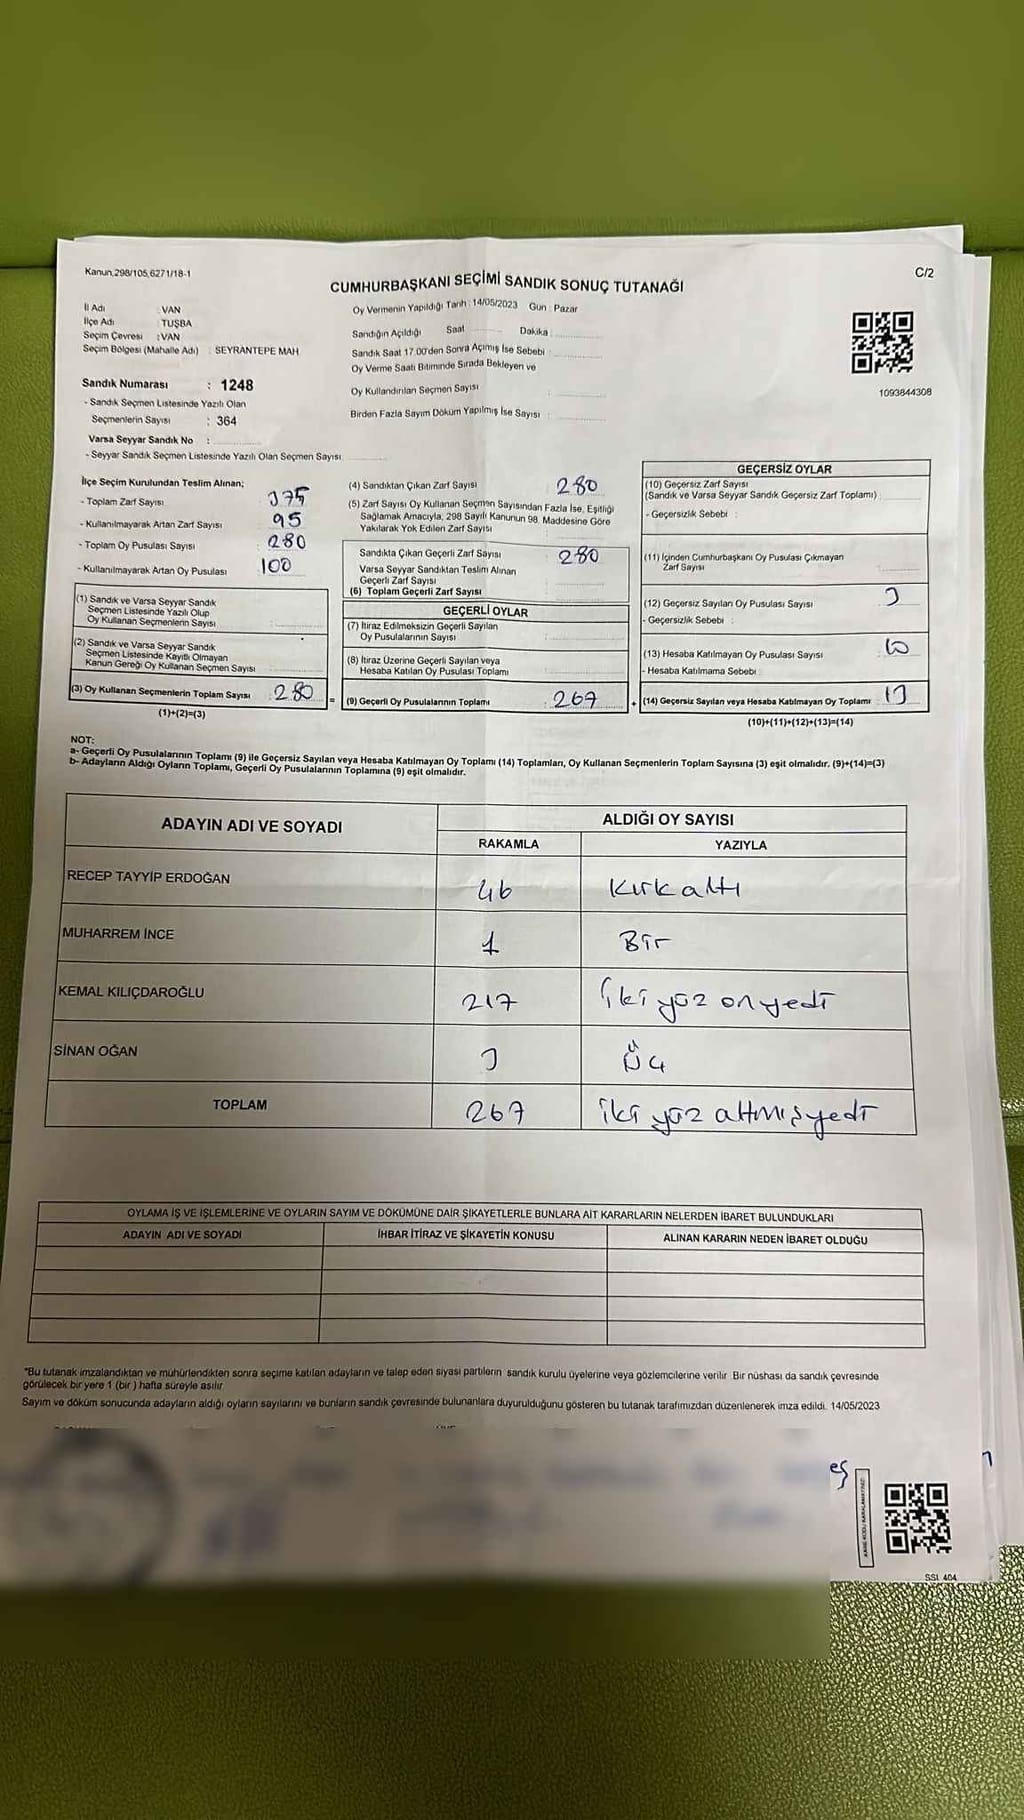 Kanun,298/105,6271/18-1
C/2
CUMHURBAŞKANI SEÇİMİ SANDIK SONUÇ TUTANAĞI
İl Adı : VAN
İlçe Adı : TUŞBA
Seçim Çevresi : VAN
Seçim Bölgesi (Mahalle Adı) : SEYRANTEPE MAH
Sandık Numarası : 1248
- Sandık Seçmen Listesinde Yazılı Olan
Seçmenlerin Sayısı : 364
Varsa Seyyar Sandık No :
- Seyyar Sandık Seçmen Listesinde Yazılı Olan Seçmen Sayısı
Oy Vermenin Yapıldığı Tarih : 14/05/2023 Gün : Pazar
Sandığın Açıldığı Saat Dakika
Sandık Saat 17.00'den Sonra Açımış İse Sebebi :
Oy Verme Saati Bitiminde Sırada Bekleyen ve
Oy Kullandırılan Seçmen Sayısı :
Birden Fazla Sayım Döküm Yapılmış İse Sayısı :
1093844308
İlçe Seçim Kurulundan Teslim Alınan;
- Toplam Zarf Sayısı 375
- Kullanılmayarak Artan Zarf Sayısı 95
- Toplam Oy Pusulası Sayısı 280
- Kullanılmayarak Artan Oy Pusulası 100
(1) Sandık ve Varsa Seyyar Sandık
Seçmen Listesinde Yazılı Olup
Oy Kullanan Seçmenlerin Sayısı :
(2) Sandık ve Varsa Seyyar Sandık
Seçmen Listesinde Kayıtlı Olmayan
Kanun Gereği Oy Kullanan Seçmen Sayısı
(3) Oy Kullanan Seçmenlerin Toplam Sayısı 280
(1)+(2)=(3)
(4) Sandıktan Çıkan Zarf Sayısı 280
(5) Zarf Sayısı Oy Kullanan Seçmen Sayısından Fazla İse, Eşitliği
Sağlamak Amacıyla, 298 Sayılı Kanunun 98. Maddesine Göre
Yakılarak Yok Edilen Zarf Sayısı
Sandıkta Çıkan Geçerli Zarf Sayısı 280
Varsa Seyyar Sandıktan Teslim Alınan
Geçerli Zarf Sayısı
(6) Toplam Geçerli Zarf Sayısı
GEÇERLİ OYLAR
(7) İtiraz Edilmeksizin Geçerli Sayılan
Oy Pusulalarının Sayısı :
(8) İtiraz Üzerine Geçerli Sayılan veya
Hesaba Katılan Oy Pusulası Toplamı
= (9) Geçerli Oy Pusulalarının Toplamı 267
GEÇERSİZ OYLAR
(10) Geçersiz Zarf Sayısı
(Sandık ve Varsa Seyyar Sandık Geçersiz Zarf Toplamı)
- Geçersizlik Sebebi :
(11) İçinden Cumhurbaşkanı Oy Pusulası Çıkmayan
Zarf Sayısı
(12) Geçersiz Sayılan Oy Pusulası Sayısı 3
- Geçersizlik Sebebi :
(13) Hesaba Katılmayan Oy Pusulası Sayısı 10
- Hesaba Katılmama Sebebi :
+ (14) Geçersiz Sayılan veya Hesaba Katılmayan Oy Toplamı 13
(10)+(11)+(12)+(13)=(14)
NOT:
a- Geçerli Oy Pusulalarının Toplamı (9) ile Geçersiz Sayılan veya Hesaba Katılmayan Oy Toplamı (14) Toplamları, Oy Kullanan Seçmenlerin Toplam Sayısına (3) eşit olmalıdır. (9)+(14)=(3)
b- Adayların Aldığı Oyların Toplamı, Geçerli Oy Pusulalarının Toplamına (9) eşit olmalıdır.
ADAYIN ADI VE SOYADI
ALDIĞI OY SAYISI
RAKAMLA YAZIYLA
RECEP TAYYİP ERDOĞAN 46 Kırkaltı
MUHARREM İNCE 1 Bir
KEMAL KILIÇDAROĞLU 217 İkiyüz onyedi
SİNAN OĞAN 3 Üç
TOPLAM 267 ikiyüz altmışyedi
OYLAMA İŞ VE İŞLEMLERİNE VE OYLARIN SAYIM VE DÖKÜMÜNE DAİR ŞİKAYETLERLE BUNLARA AİT KARARLARIN NELERDEN İBARET BULUNDUKLARI
ADAYIN ADI VE SOYADI İHBAR İTİRAZ VE ŞİKAYETİN KONUSU ALINAN KARARIN NEDEN İBARET OLDUĞU
*Bu tutanak imzalandıktan ve mühürlendikten sonra seçime katılan adayların ve talep eden siyasi partilerin sandık kurulu üyelerine veya gözlemcilerine verilir. Bir nüshası da sandık çevresinde
görülecek bir yere 1 (bir ) hafta süreyle asılır.
Sayım ve döküm sonucunda adayların aldığı oyların sayılarını ve bunların sandık çevresinde bulunanlara duyurulduğunu gösteren bu tutanak tarafımızdan düzenlenerek imza edildi. 14/05/2023
eş
SSI. 404